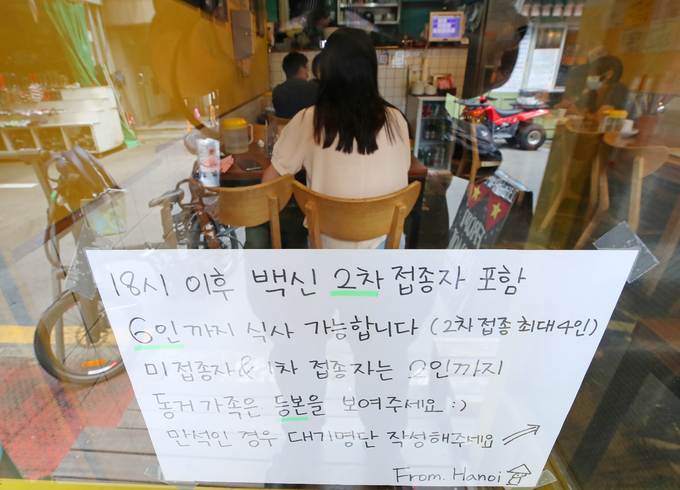 18시 이후 백신 2차 접종자 포함
6인까지 식사 가능합니다 (2차 접종 최대 4인)
미접종자 & 1차 접종자는 2인까지
동거가족은 등본을 보여주세요 :)
만석인 경우 대기명단 작성해주세요
From. Hanoi